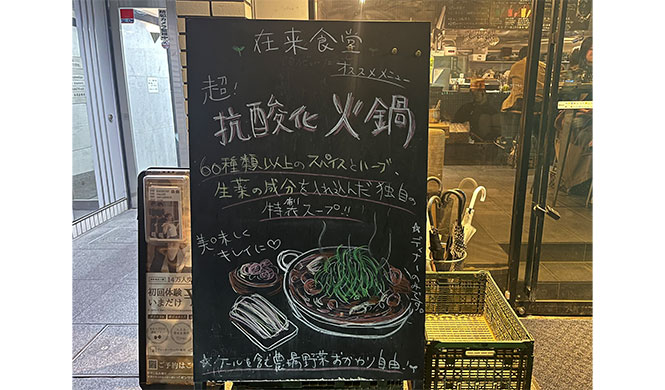 在来食堂
オススメメニュー
超!
抗酸化 火鍋
60種類以上のスパイスとハーブ、
生薬の成分をとれ込んだ独自の
特製スープ!!
美味しく
キレイに♡
☆ディナーのみです。
☆ケールを含む農場野菜おかわり自由!
14万人
初回体験
いまだけ
ご予約は